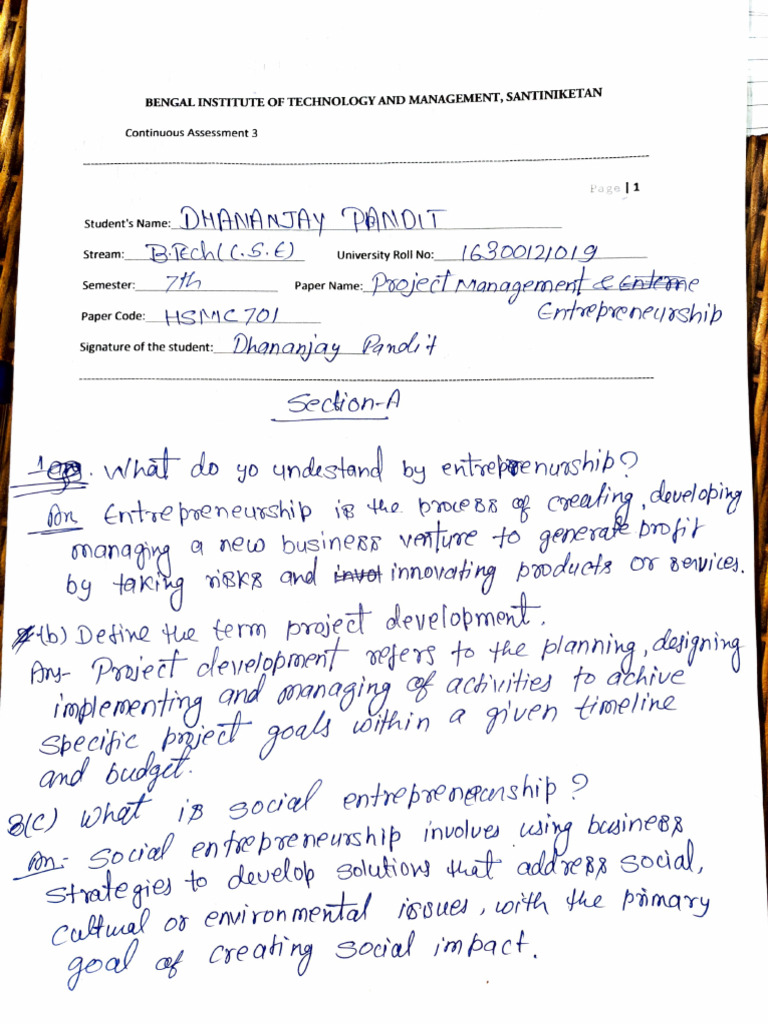 BENGAL INSTITUTE OF TECHNOLOGY AND MANAGEMENT, SANTINIKETAN
Continuous Assessment 3
Page | 1
Student's Name: DHANANJAY PANDIT
Stream: B.Tech (C.S.E) University Roll No: 16300121019
Semester: 7th Paper Name: Project Management &
Entrepreneurship
Paper Code: HSMC 701
Signature of the student: Dhananjay Pandit
Section-A
1 . What do yo undestand by entreprenurship?
An Entrepreneurship is the process of creating, developing
managing a new business venture to generate profit
by taking risks and innovating products or services.
(b) Define the term project development.
Ans- Project development refers to the planning, designing
implementing and managing of activities to achive
specific project goals within a given timeline
and budget.
(c) What is social entrepreneurship?
An:- Social entrepreneurship involves using business
strategies to develop solutions that address social,
cultural or environmental issues, with the primary
goal of creating social impact.